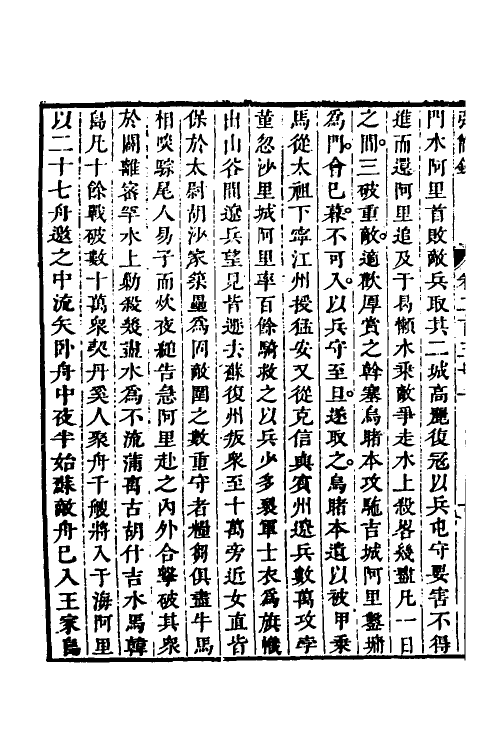 門水阿里首敗敵兵取其二城高麗復冠以兵屯守要害不得
進而還阿里追及于曷懶水乘敵爭走水上殺畧幾盡凡一日
之間三破重敵適歡厚賞之斡塞烏睹本攻駞吉城阿里鑿墉
爲門會已暮不可入以兵守至旦遂取之烏睹本遺以被甲乗
馬從太祖下寧江州授猛安又從克信典賓州遼兵數萬攻孛
董忽沙里城阿里率百餘騎救之以兵少多裂軍士衣為旗幟
出山谷間遼兵望見皆遁去蘇復州叛衆至十萬旁近女直皆
保於太尉胡沙家築壘為固敵圍之數重守者糧芻俱盡牛馬
相啖騣尾人易子而炊夜縋告急阿里赴之內外合擊破其衆
於闢離密罕水上勦殺幾盡水為不流蒲离古胡什吉水馬韓
島凡十餘戰破數十萬衆契丹奚人聚舟千艘將入于海阿里
以二十七舟邀之中流矢卧舟中夜半始蘇敵舟已入王家島